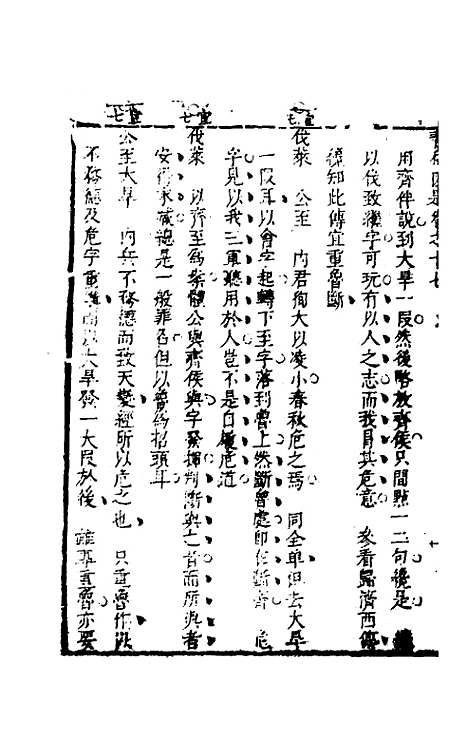 用齊伴說到大旱一段然後略放齊侯只間點一二句後是
以伐致繼字可玩有以人之志而我肩其危意 參看歸濟西
後知此傳宜重魯斷
宣七
伐萊 公至 內君徇大以凌小春秋危之焉 同全单但去大旱
一段耳以會字起轉下至字落到魯上然斷魯處即伯斷齊 危
字見以我三軍聽用於人豈不是自履危道
宣七
伐萊 以齊至為案體公與齊侯與字發揮判斷與之者而所與者
安得求減總是一般罪名但以魯為招頭耳
宣七
公至大旱 內兵不務德而致天變經所以危之也 只重魯作以
不務德及危字重講而以大旱發一大段於後 雖單重魯亦要